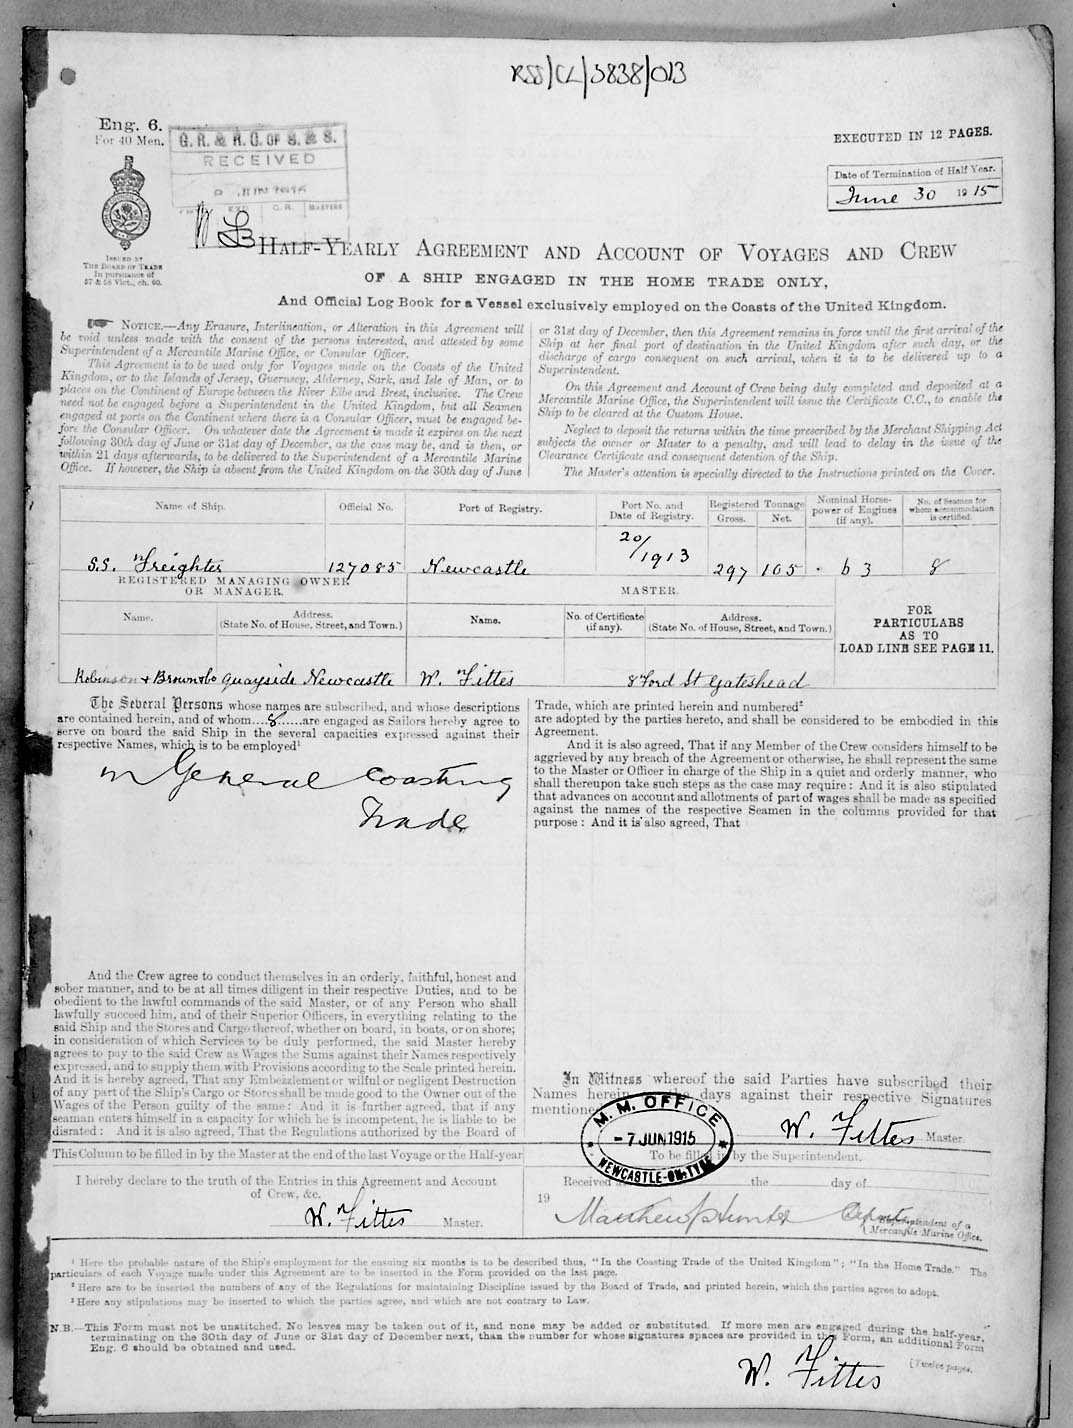 RSS/CL/5838/013
Eng. 6.
For 40 Men.
G. R. & R. O. OF S. & S.
RECEIVED
C. R.
MASTERS
EXECUTED IN 12 PAGES.
Date of Termination of Half Year.
June 30 1915
ISSUED BY
THE BOARD OF TRADE
In pursuance of
57 & 58 Vict., ch. 60.
HALF-YEARLY AGREEMENT AND ACCOUNT OF VOYAGES AND CREW
OF A SHIP ENGAGED IN THE HOME TRADE ONLY,
And Official Log Book for a Vessel exclusively employed on the Coasts of the United Kingdom.
NOTICE.—Any Erasure, Interlineation, or Alteration in this Agreement will
be void unless made with the consent of the persons interested, and attested by some
Superintendent of a Mercantile Marine Office, or Consular Officer.
This Agreement is to be used only for Voyages made on the Coasts of the United
Kingdom, or to the Islands of Jersey, Guernsey, Alderney, Sark, and Isle of Man, or to
places on the Continent of Europe between the River Elbe and Brest, inclusive. The Crew
need not be engaged before a Superintendent in the United Kingdom, but all Seamen
engaged at ports on the Continent where there is a Consular Officer, must be engaged be-
fore the Consular Officer. On whatever date the Agreement is made it expires on the next
following 30th day of June or 31st day of December, as the case may be, and is then, or
within 21 days afterwards, to be delivered to the Superintendent of a Mercantile Marine
Office. If however, the Ship is absent from the United Kingdom on the 30th day of June
or 31st day of December, then this Agreement remains in force until the first arrival of the
Ship at her final port of destination in the United Kingdom after such day, or the
discharge of cargo consequent on such arrival, when it is to be delivered up to a
Superintendent.
On this Agreement and Account of Crew being duly completed and deposited at a
Mercantile Marine Office, the Superintendent will issue the Certificate C.C., to enable the
Ship to be cleared at the Custom House.
Neglect to deposit the returns within the time prescribed by the Merchant Shipping Act
subjects the owner or Master to a penalty, and will lead to delay in the issue of the
Clearance Certificate and consequent detention of the Ship.
The Master's attention is specially directed to the Instructions printed on the Cover.
Name of Ship.
Official No.
Port of Registry.
Port No. and
Date of Registry.
Registered Tonnage
Gross. Net.
Nominal Horse-
power of Engines
(if any).
No. of Seamen for
whom accommodation
is certified.
S.S. "Freighter 127085 Newcastle 20/1913 297 105 63 8
REGISTERED MANAGING OWNER
OR MANAGER.
MASTER.
Name.
Address.
(State No. of House, Street, and Town.)
Name.
No. of Certificate
(if any).
Address.
(State No. of House, Street, and Town.)
FOR
PARTICULARS
AS TO
LOAD LINE SEE PAGE 11.
Robinson & Brown & Co Quayside Newcastle W. Fittes 8 Ford St Gateshead
The Several Persons whose names are subscribed, and whose descriptions
are contained herein, and of whom....8......are engaged as Sailors hereby agree to
serve on board the said Ship in the several capacities expressed against their
respective Names, which is to be employed¹
in General Coasting
Trade
And the Crew agree to conduct themselves in an orderly, faithful, honest and
sober manner, and to be at all times diligent in their respective Duties, and to be
obedient to the lawful commands of the said Master, or of any Person who shall
lawfully succeed him, and of their Superior Officers, in everything relating to the
said Ship and the Stores and Cargo thereof, whether on board, in boats, or on shore;
in consideration of which Services to be duly performed, the said Master hereby
agrees to pay to the said Crew as Wages the Sums against their Names respectively
expressed, and to supply them with Provisions according to the Scale printed herein.
And it is hereby agreed, That any Embezzlement or wilful or negligent Destruction
of any part of the Ship's Cargo or Stores shall be made good to the Owner out of the
Wages of the Person guilty of the same: And it is further agreed, that if any
seaman enters himself in a capacity for which he is incompetent, he is liable to be
disrated: And it is also agreed, That the Regulations authorized by the Board of
Trade, which are printed herein and numbered²
are adopted by the parties hereto, and shall be considered to be embodied in this
Agreement.
And it is also agreed, That if any Member of the Crew considers himself to be
aggrieved by any breach of the Agreement or otherwise, he shall represent the same
to the Master or Officer in charge of the Ship in a quiet and orderly manner, who
shall thereupon take such steps as the case may require: And it is also stipulated
that advances on account and allotments of part of wages shall be made as specified
against the names of the respective Seamen in the columns provided for that
purpose: And it is³ also agreed, That
In Witness whereof the said Parties have subscribed their
Names herein the days against their respective Signatures
mentioned
W. Fittes Master.
M. M. OFFICE
- 7 JUN 1915
NEWCASTLE-ON-TYNE
This Column to be filled in by the Master at the end of the last Voyage or the Half-year
I hereby declare to the truth of the Entries in this Agreement and Account
of Crew, &c.
W. Fittes Master.
To be filled in by the Superintendent.
Received the day of
19
Matthew Hunter Deputy
Superintendent of a
Mercantile Marine Office.
¹ Here the probable nature of the Ship's employment for the ensuing six months is to be described thus, "In the Coasting Trade of the United Kingdom"; "In the Home Trade." The
particulars of each Voyage made under this Agreement are to be inserted in the Form provided on the last page.
² Here are to be inserted the numbers of any of the Regulations for maintaining Discipline issued by the Board of Trade, and printed herein, which the parties agree to adopt.
³ Here any stipulations may be inserted to which the parties agree, and which are not contrary to Law.
N.B.—This Form must not be unstitched. No leaves may be taken out of it, and none may be added or substituted. If more men are engaged during the half-year,
terminating on the 30th day of June or 31st day of December next, than the number for whose signatures spaces are provided in this Form, an additional Form
Eng. 6 should be obtained and used.
[Twelve pages.
W. Fittes